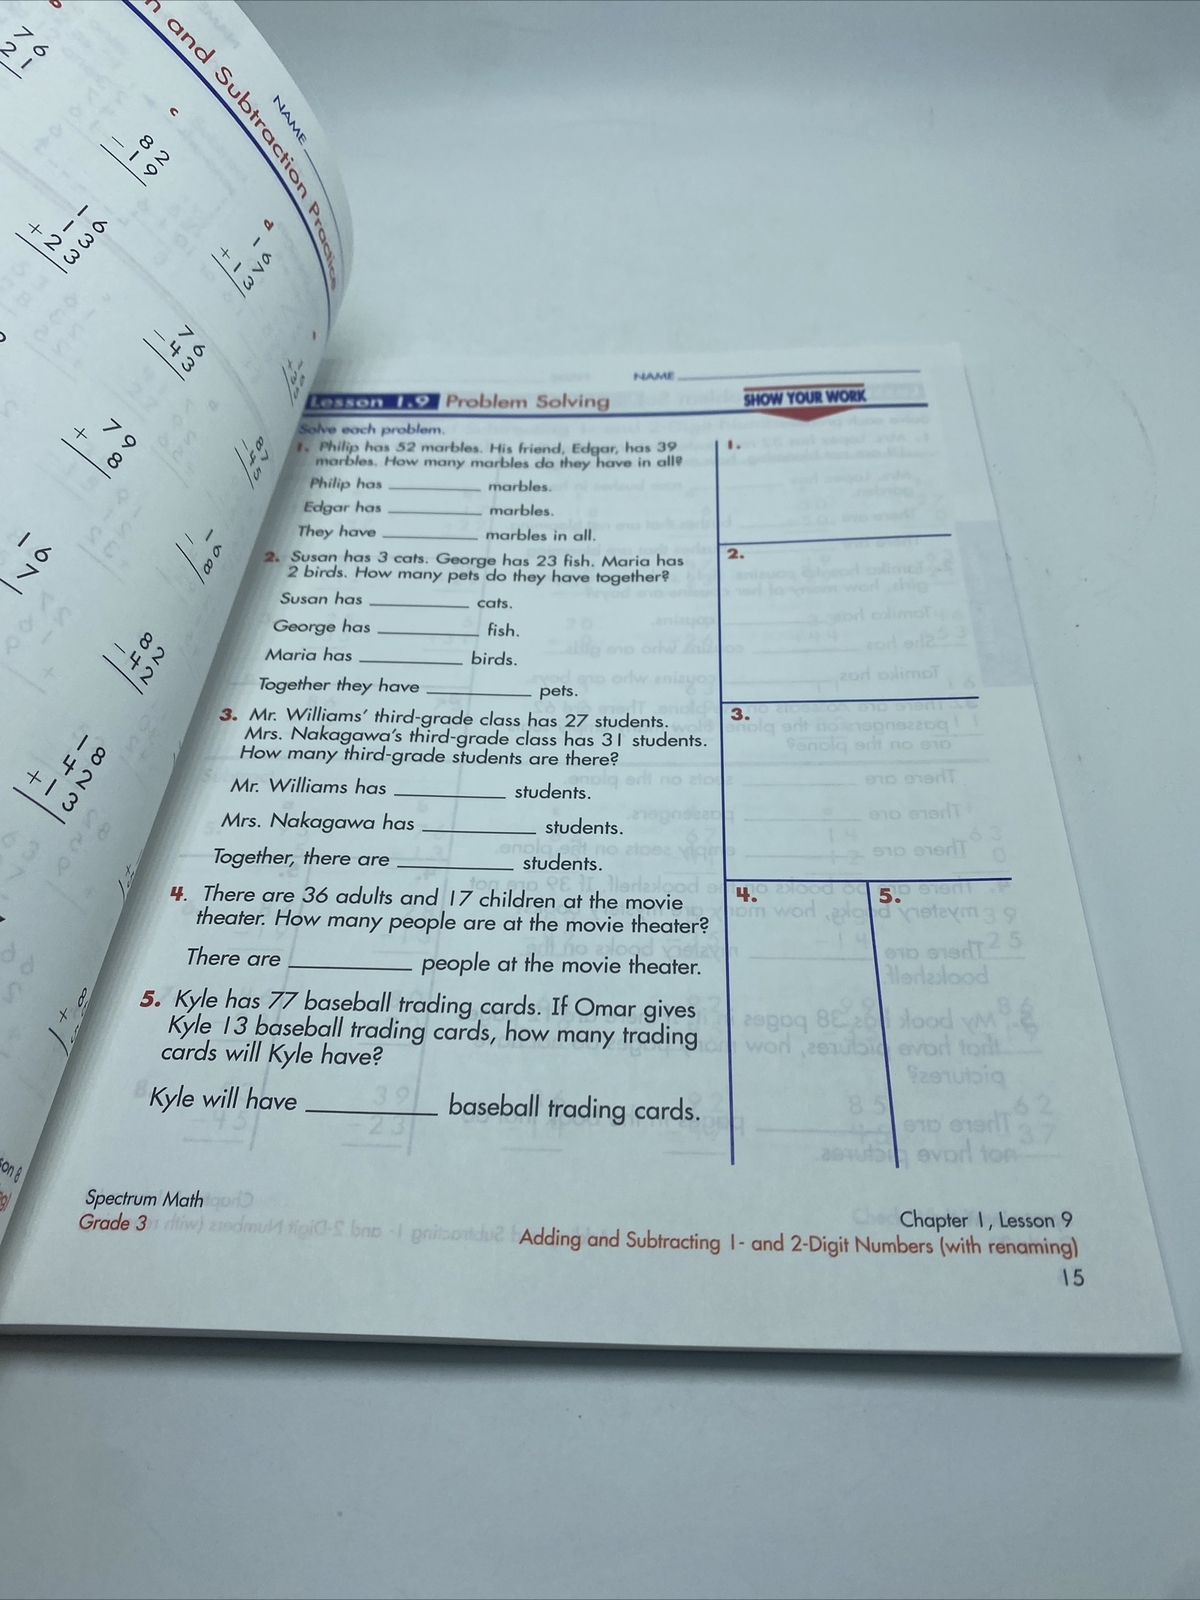 n and Subtraction Practice
NAME
76
21
c
82
- 19
d
1
136
+ 233
16
+ 13
76
- 43
87
- 45
79
+ 8
16
- 8
16
7
82
- 42
1
48
+ 1328
NAME
Lesson 1.9 Problem Solving
SHOW YOUR WORK
Solve each problem.
1. Philip has 52 marbles. His friend, Edgar, has 39
marbles. How many marbles do they have in all?
Philip has __________ marbles.
Edgar has __________ marbles.
They have __________ marbles in all.
2. Susan has 3 cats. George has 23 fish. Maria has
2 birds. How many pets do they have together?
Susan has __________ cats.
George has __________ fish.
Maria has __________ birds.
Together they have __________ pets.
3. Mr. Williams' third-grade class has 27 students.
Mrs. Nakagawa's third-grade class has 31 students.
How many third-grade students are there?
Mr. Williams has __________ students.
Mrs. Nakagawa has __________ students.
Together, there are __________ students.
4. There are 36 adults and 17 children at the movie
theater. How many people are at the movie theater?
There are __________ people at the movie theater.
5. Kyle has 77 baseball trading cards. If Omar gives
Kyle 13 baseball trading cards, how many trading
cards will Kyle have?
Kyle will have __________ baseball trading cards.
1.
2.
3.
4.
5.
Spectrum Math
Grade 3
Chapter 1, Lesson 9
Adding and Subtracting 1- and 2-Digit Numbers (with renaming)
15